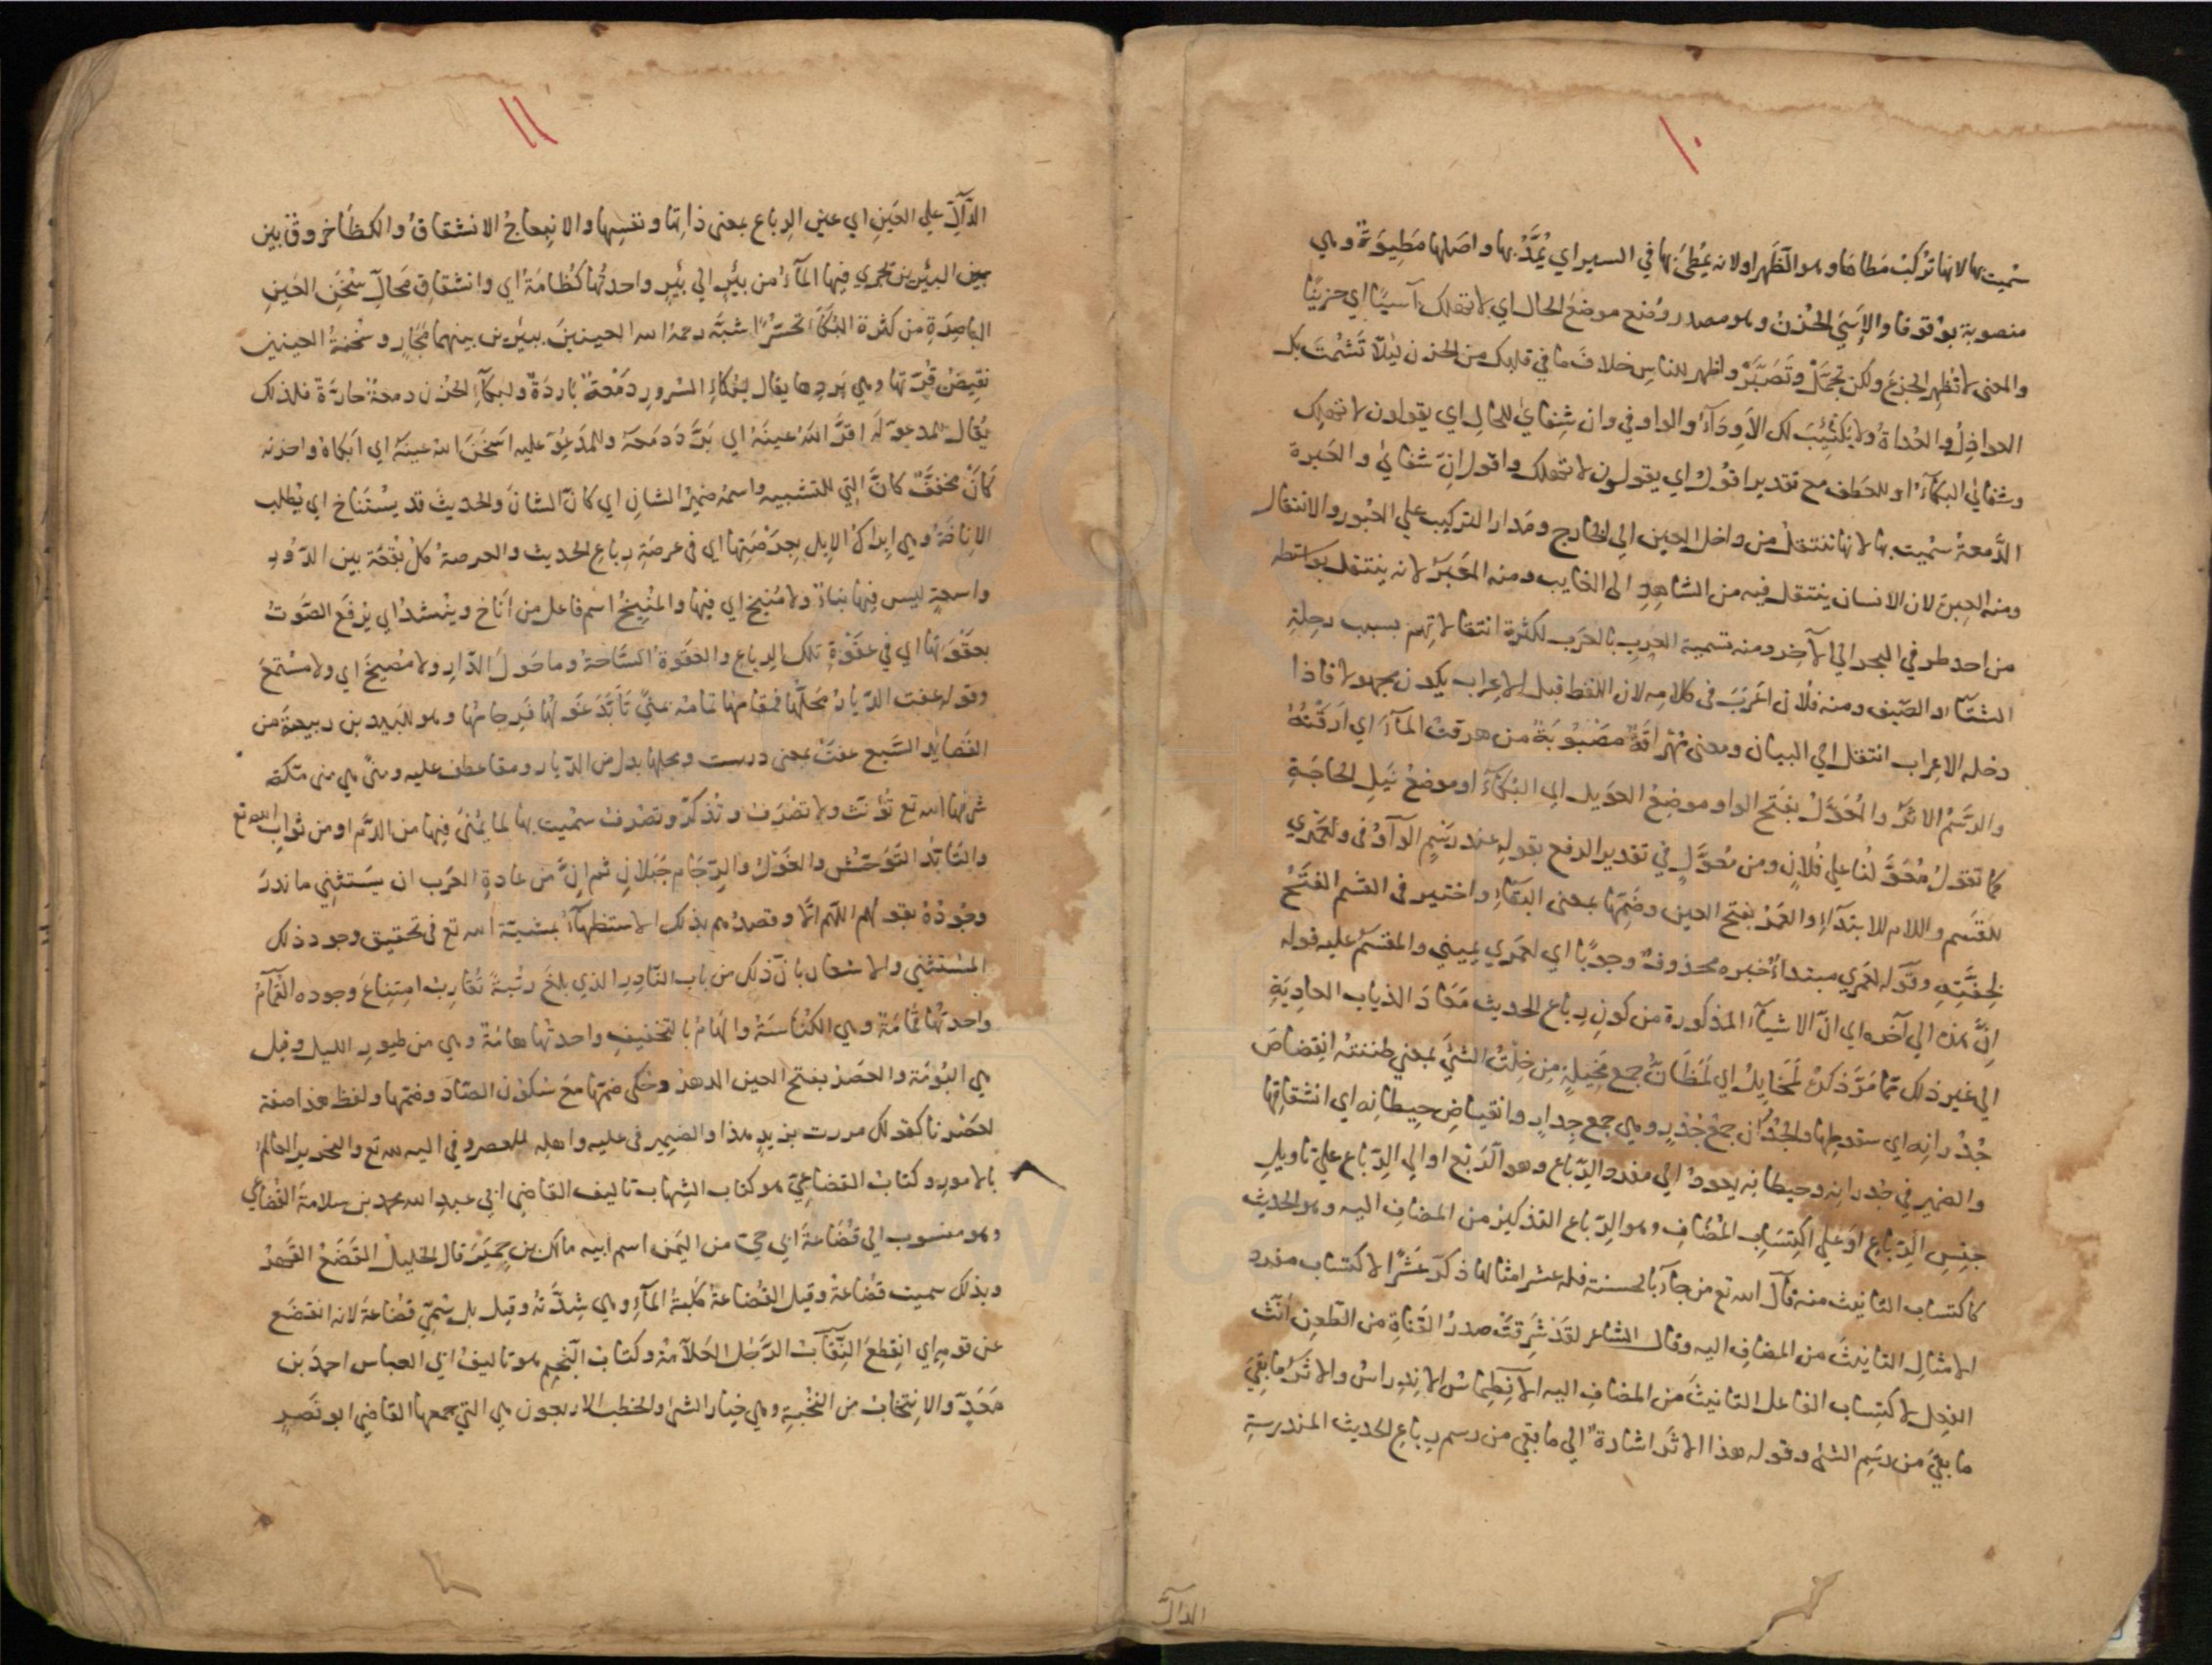 ١٠
سميت بها لانها تركب مطاها وهو الظهر او لانه يمطى بها في السير اي يمد بها واصلها مطيوة وهي
منصوبة بوقوفا والاسى الحزن وهو مصدر وضع موضع الحال اي لا تهلك آسيا اي حزينا
والمعنى لا تظهر الجزع ولكن تجمل وتصبر واظهر للناس خلاف ما في قلبك من الحزن ليلا تشمت بك
العواذل والعداة ولا يكتئب لك الاوداء والواو في وان شفائي للحال اي يقولون لا تهلك
وشفائي البكاء او للعطف مع تقدير اقول اي يقولون لا تهلك واقول ان شفائي والعبرة
الدمعة سميت بها لانها تنتقل من داخل العين الى الخارج ومدار التركيب علي العبور والانتقال
ومنه العبرة لان الانسان ينتقل فيه من الشاهد الى الغايب ومنه المعبر لانه ينتقل بواسطته
من احد طرفي البحر الي الآخر ومنه تسمية العرب بالعرب لكثرة انتقالاتهم بسبب رحلة
الشتاء والصيف ومنه فلان اعرب في كلامه لان اللفظ قبل الاعراب يكون مجهولا فاذا
دخله الاعراب انتقل الي البيان ومعنى مهراقة مصبوبة من هرقت الماء اي ارقته
والرسم الاثر والمعول بفتح الواو موضع العويل اي البكاء او موضع نيل الحاجة
كما تقول معولنا علي فلان ومن معول في تقدير الرفع بقوله عند رسم الواو في ولعمري
للقسم واللام للابتداء والعمر بفتح العين وضمها بمعنى البقاء واختير في القسم الفتح
لخفته وقوله لعمري مبتداء خبره محذوف وجوبا اي لعمري يميني والمقسم عليه قوله
ان هذه الي آخره اي ان الاشياء المذكورة من كون رباع الحديث معاد الذياب العادية
الي غير ذلك مما مر ذكره لمخايل اي لمظان جمع مخيلة من خلت الشئ بمعني ظننته انقضاض
جدرانه اي سقوطها والجدران جمع جدر وهي جمع جدار وانقياض حيطانه اي انشقاقها
والضمير في جدرانه وحيطانه يعود الي مفرد الرباع وهو الربع او الي الرباع علي تاويل
جنس الرباع او علي اكتساب المضاف وهو الرباع التذكير من المضاف اليه وهو الحديث
كاكتساب التانيث منه قال الله تع من جاء بالحسنة فله عشر امثالها ذكر عشرا لاكتساب مفرد
الامثال التانيث من المضاف اليه وقال الشاعر لقد شرقت صدر القناة من الطعن انث
الفعل لاكتساب الفاعل التانيث من المضاف اليه الانطماس الاندراس والاثر ما بقي
ما بقي من رسم الشئ وقوله هذا الاثر اشارة الي ما بقي من رسم رباع الحديث المندرسة
الدال
١١
الدال علي العين اي عين الرباع بمعنى ذاتها ونفسها والانبعاج الانشقاق والكظا خروق بين
بعض البئرين تجري فيها الماء من بئر الي بئر واحدتها كظامة اي وانشقاق محال سخن العين
الباصرة من كثرة البكاء تحسرا شبه رحمه الله العينين ببئرين بينهما مجار وسخنة العين
نقيض قرتها وهي بردها يقال لبكاء السرور دمعة باردة ولبكاء الحزن دمعة حارة فلذلك
يقال للمدعو له اقر الله عينه اي برد دمعه وللمدعو عليه اسخن الله عينه اي ابكاه واحزنه
كان مخفف كان التي للتشبيه واسمه ضمير الشان اي كان الشان والحديث قد يستناخ اي يطلب
الاناخة وهي ابراك الابل بعرصتها اي في عرصة رباع الحديث والعرصة كل بقعة بين الدور
واسعة ليس فيها بناء ولا منيخ اي فيها والمنيخ اسم فاعل من اناخ وينشد اي يرفع الصوت
بعقوتها اي في عقوة تلك الرباع والعقوة الساحة وما حول الدار ولا مصيخ اي ولا مستمع
وقوله عفت الديار محلها فمقامها تمامه بمنى تابد غولها فرجامها وهو للبيد بن ربيعة من
القصايد السبع عفت بمعنى درست ومحلها بدل من الديار ومقامها عطف عليه ومنى هي منى مكة
شرفها الله تع تؤنث ولا تصرف وتذكر وتصرف سميت بها لما يمنى فيها من الدم او من ثواب الله تع
والتابد التوحش والغول والرجام جبلان ثم ان من عادة العرب ان يستثني ما ندر
وجوده بقولهم اللهم الا وقصدهم بذلك الاستظهار بمشية الله تع في تحقيق وجود ذلك
المستثني والاشعار بان ذلك من باب النادر الذي بلغ رتبة تقارب امتناع وجوده الثمام
واحدتها ثمامة وهي الكناسة والهام بالتخفيف واحدتها هامة وهي من طيور الليل وقيل
هي البومة والعصر بفتح العين الدهر وحكى ضمتها مع سكون الصاد وضمها ولفظ هذا صفة
لعصرنا كقولك مررت بزيد هذا والضمير في عليه واهله للعصر وفي اليه لله تع والنحرير العالم
بالامور وكتاب القضاعي هو كتاب الشهاب تاليف القاضي ابي عبد الله محمد بن سلامة القضاعي
وهو منسوب الي قضاعة ابي حي من اليمن اسم ابيه مالك بن حمير قال الخليل القضع القهر
وبذلك سميت قضاعة وقيل القضاعة كلبة الماء وهي شدته وقيل بل سمي قضاعة لانه انقضع
عن قومه اي انقطع النقاب الرجل العلامة وكتاب النجم هو تاليف ابي العباس احمد بن
معد والانتخاب من النخبة وهي خيار الشئ والخطب الاربعون هي التي جمعها القاضي ابو نصر